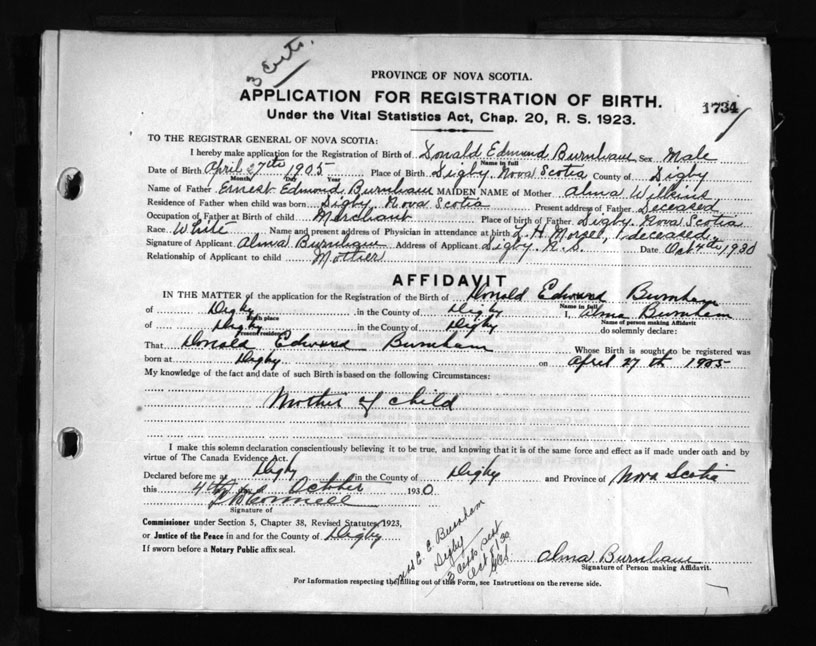 3 Certs.
PROVINCE OF NOVA SCOTIA.
APPLICATION FOR REGISTRATION OF BIRTH.
1734
Under the Vital Statistics Act, Chap. 20, R. S. 1923.
TO THE REGISTRAR GENERAL OF NOVA SCOTIA:
I hereby make application for the Registration of Birth of Donald Edmund Burnham Sex Male
Name in full
Date of Birth April 27th 1905 Place of Birth Digby Nova Scotia County of Digby
Month Day Year
Name of Father Ernest Edmond Burnham MAIDEN NAME of Mother Alma Wilkins
Residence of Father when child was born Digby, Nova Scotia Present address of Father Deceased
Occupation of Father at Birth of child Merchant Place of birth of Father Digby Nova Scotia
Race White Name and present address of Physician in attendance at birth L. H. Morse, deceased
Signature of Applicant Alma Burnham Address of Applicant Digby N.S. Date Oct 4th 1930
Relationship of Applicant to child Mother
AFFIDAVIT
IN THE MATTER of the application for the Registration of the Birth of Donald Edward Burnham
Name in full
of Digby in the County of Digby I, Alma Burnham
Birth place Name of person making Affidavit
of Digby in the County of Digby do solemnly declare:
Present residence
That Donald Edward Burnham Whose Birth is sought to be registered was
born at Digby on April 27th 1905
My knowledge of the fact and date of such Birth is based on the following Circumstances:
Mother of child
I make this solemn declaration conscientiously believing it to be true, and knowing that it is of the same force and effect as if made under oath and by
virtue of The Canada Evidence Act.
Declared before me at Digby in the County of Digby and Province of Nova Scotia
this 4th day of October 1930
Signature of
Commissioner under Section 5, Chapter 38, Revised Statutes 1923,
or Justice of the Peace in and for the County of Digby
If sworn before a Notary Public affix seal.
E. E. Burnham
Digby
sent
Alma Burnham
Signature of Person making Affidavit.
For Information respecting the filling out of this Form, see Instructions on the reverse side.